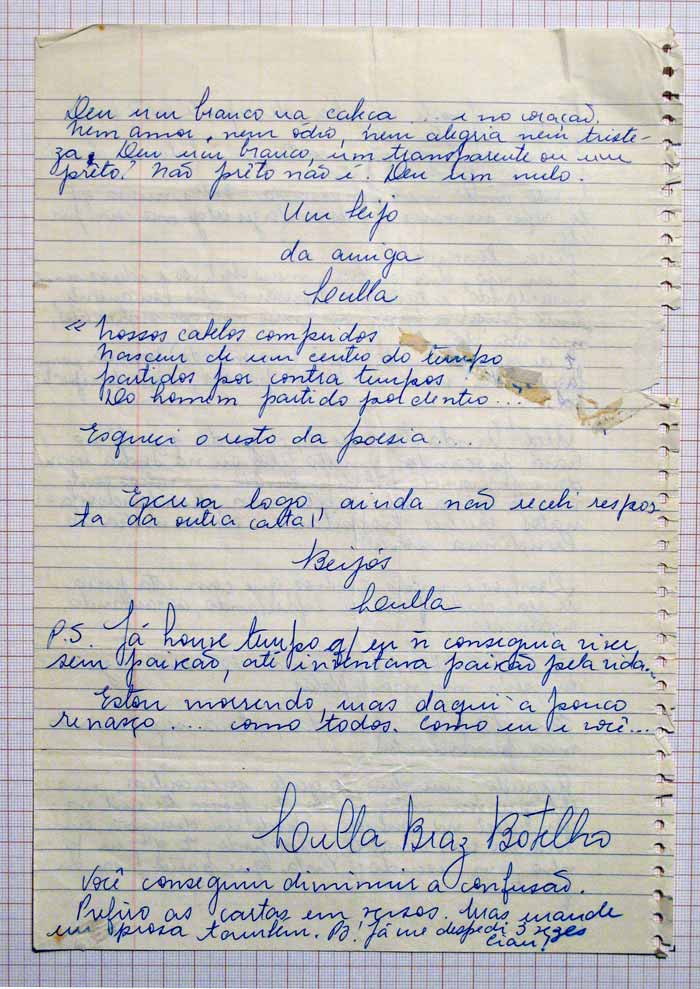 Deu um branco na cabeça... e no coração.
Nem amor, nem ódio, nem alegria nem triste-
za. Deu um branco, um transparente ou um
prêto? Não prêto não é. Deu um nulo.
Um beijo
da amiga
Leulla
"Nossos cabelos compridos
Nascem de um centro do tempo
partidos por contra tempos
Do homem partido por dentro...
Esqueci o resto da poesia...
Escreva logo, ainda não recebi respos
ta da outra carta!
Beijós
Leulla
P.S. Já houve tempo q/ eu ñ conseguia viver
sem paixão, até inventava paixão pela vida...
Estou morrendo, mas daqui à pouco
renasço... como todos. Como eu e você...
Leulla Braz Botelho
Você conseguiu diminuir a confusão.
Prefiro as cartas em versos. Mas mande
em prosa também. Já me despedi 3 vezes
Ciau!